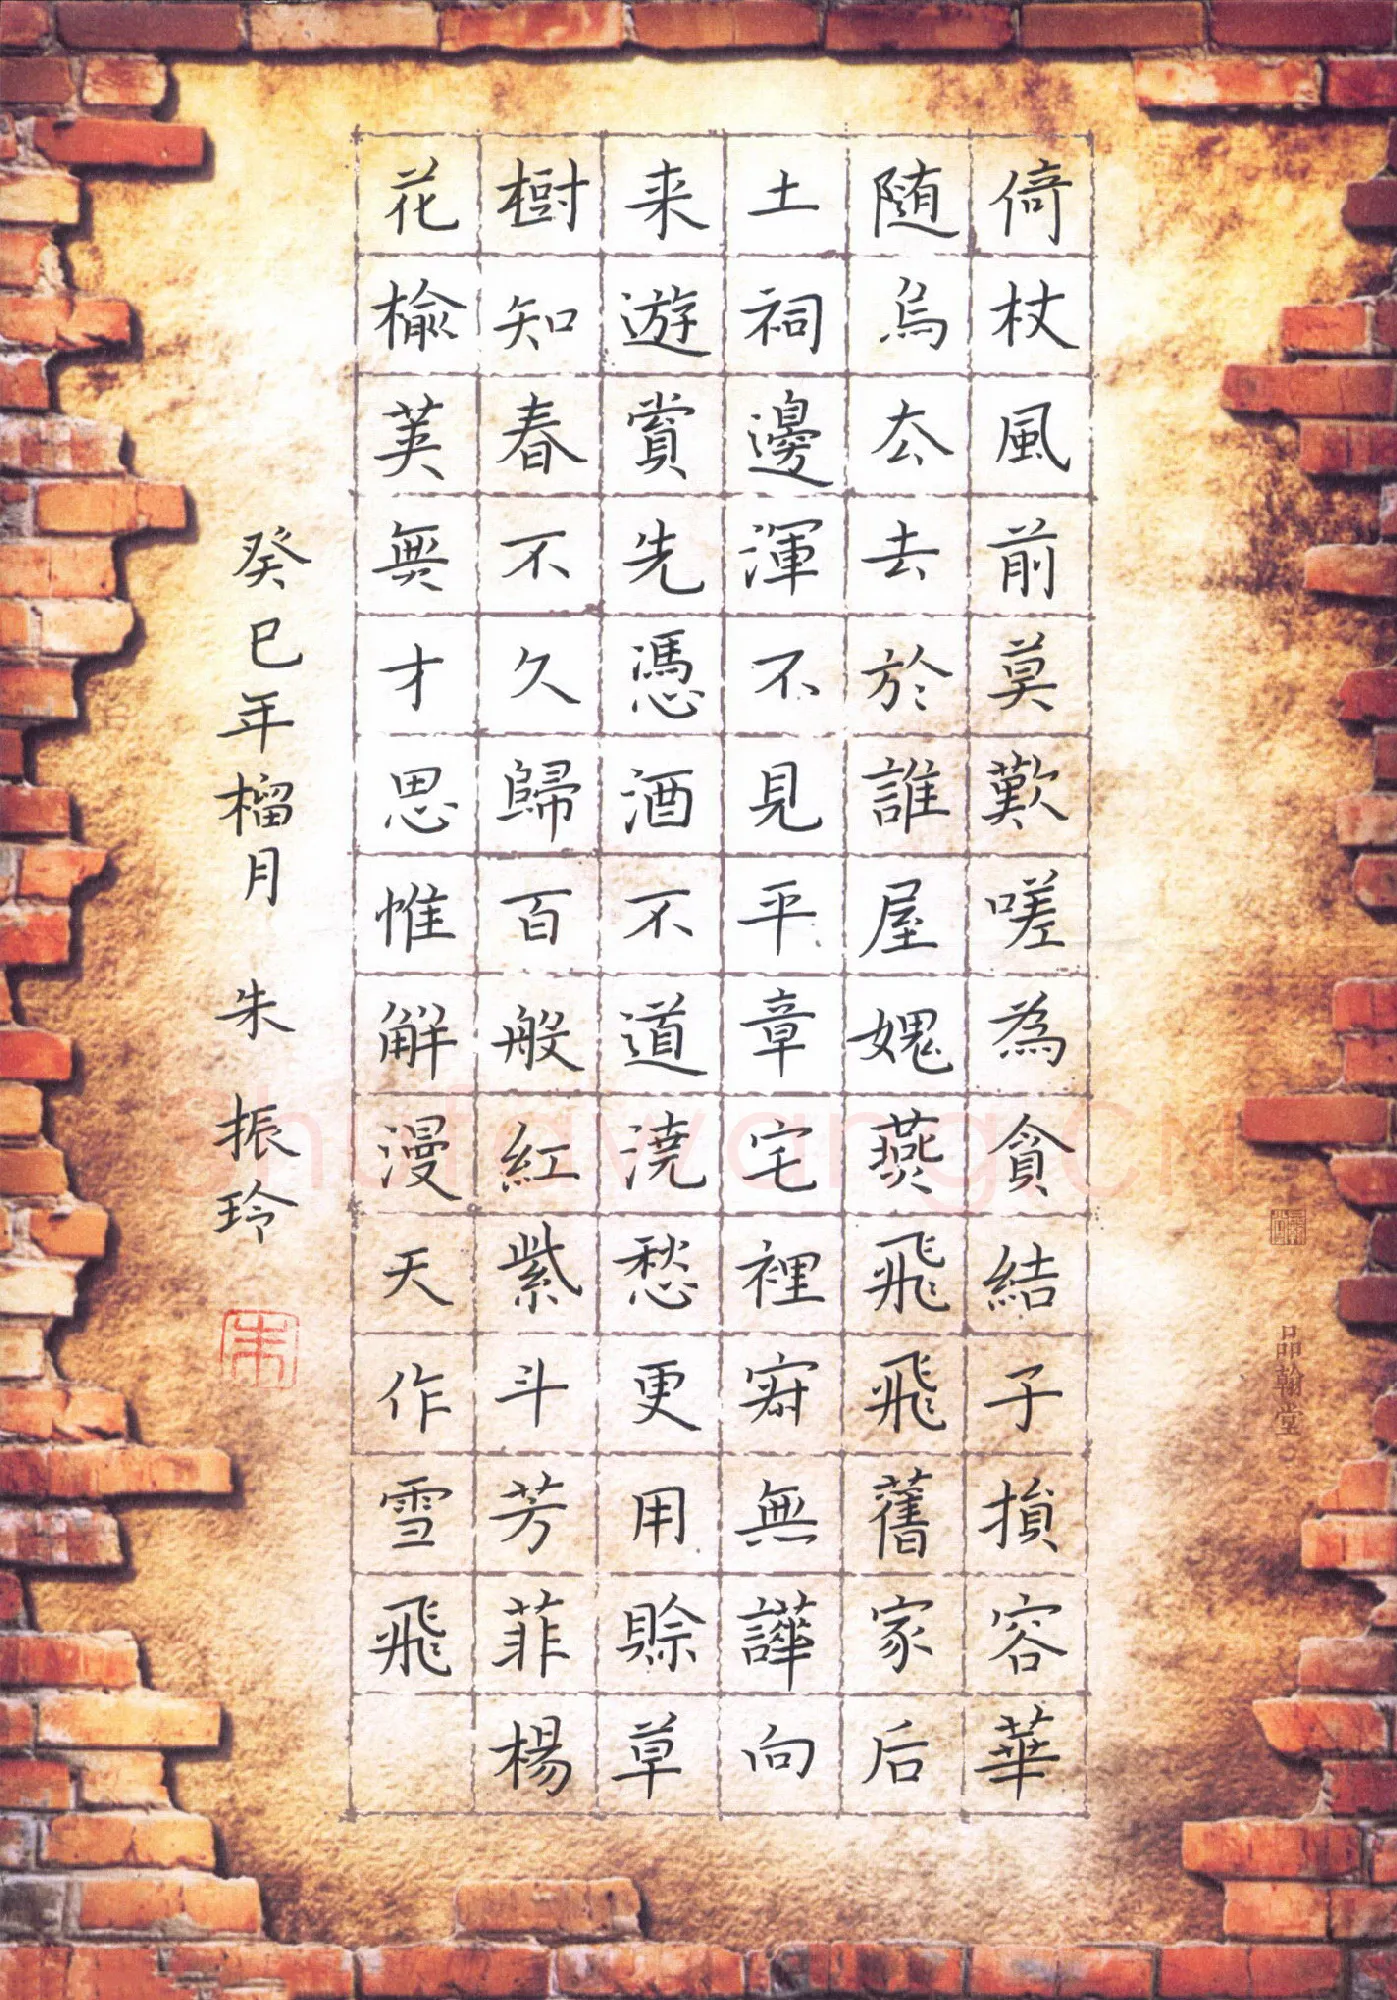 倚杖風前莫歎嗟為貪結子損容華
随烏厺去於誰屋媿燕飛飛舊家后
土祠邊渾不見平章宅裡㝥無譁向
来遊賞先憑酒不道澆愁更用賖草
樹知春不久歸百般紅紫斗芳菲楊
花榆莢無才思惟解漫天作雪飛
癸巳年榴月 朱振玲
朱
品翰堂
shufawang.CN